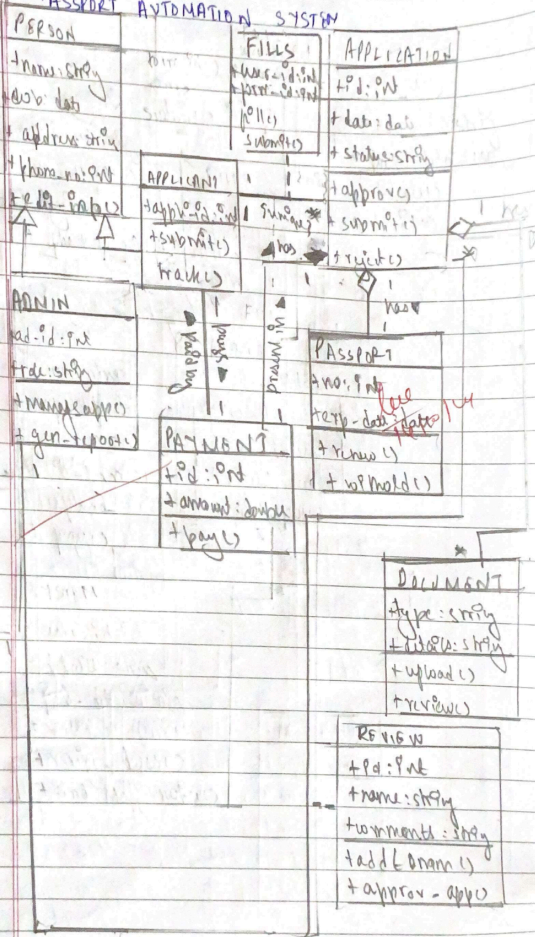 PASSPORT AUTOMATION SYSTEM
PERSON
+name:string
+dob: date
+ address:string
+phone_no:int
+edit_info()
FILLS
+user-id:int
fill()
submit()
APPLICATION
+id:int
+ date: dat
+ status:string
+approve()
+ submit()
+ reject()
1
APPLICANT
+submit()
track()
1
1
*
has
1
*
1
has
ADMIN
+ad-id:int
+role:string
+ gen-report()
1
paid by
pays
1
1
PASSPORT
+no: int
+exp-date:date
+ renew()
PAYMENT
+id:int
+ amount: double
+ pay()
*
DOCUMENT
+type:string
+details:string
+ upload()
+review()
REVIEW
+id:int
+name:string
+comments:string
+ approv-app()